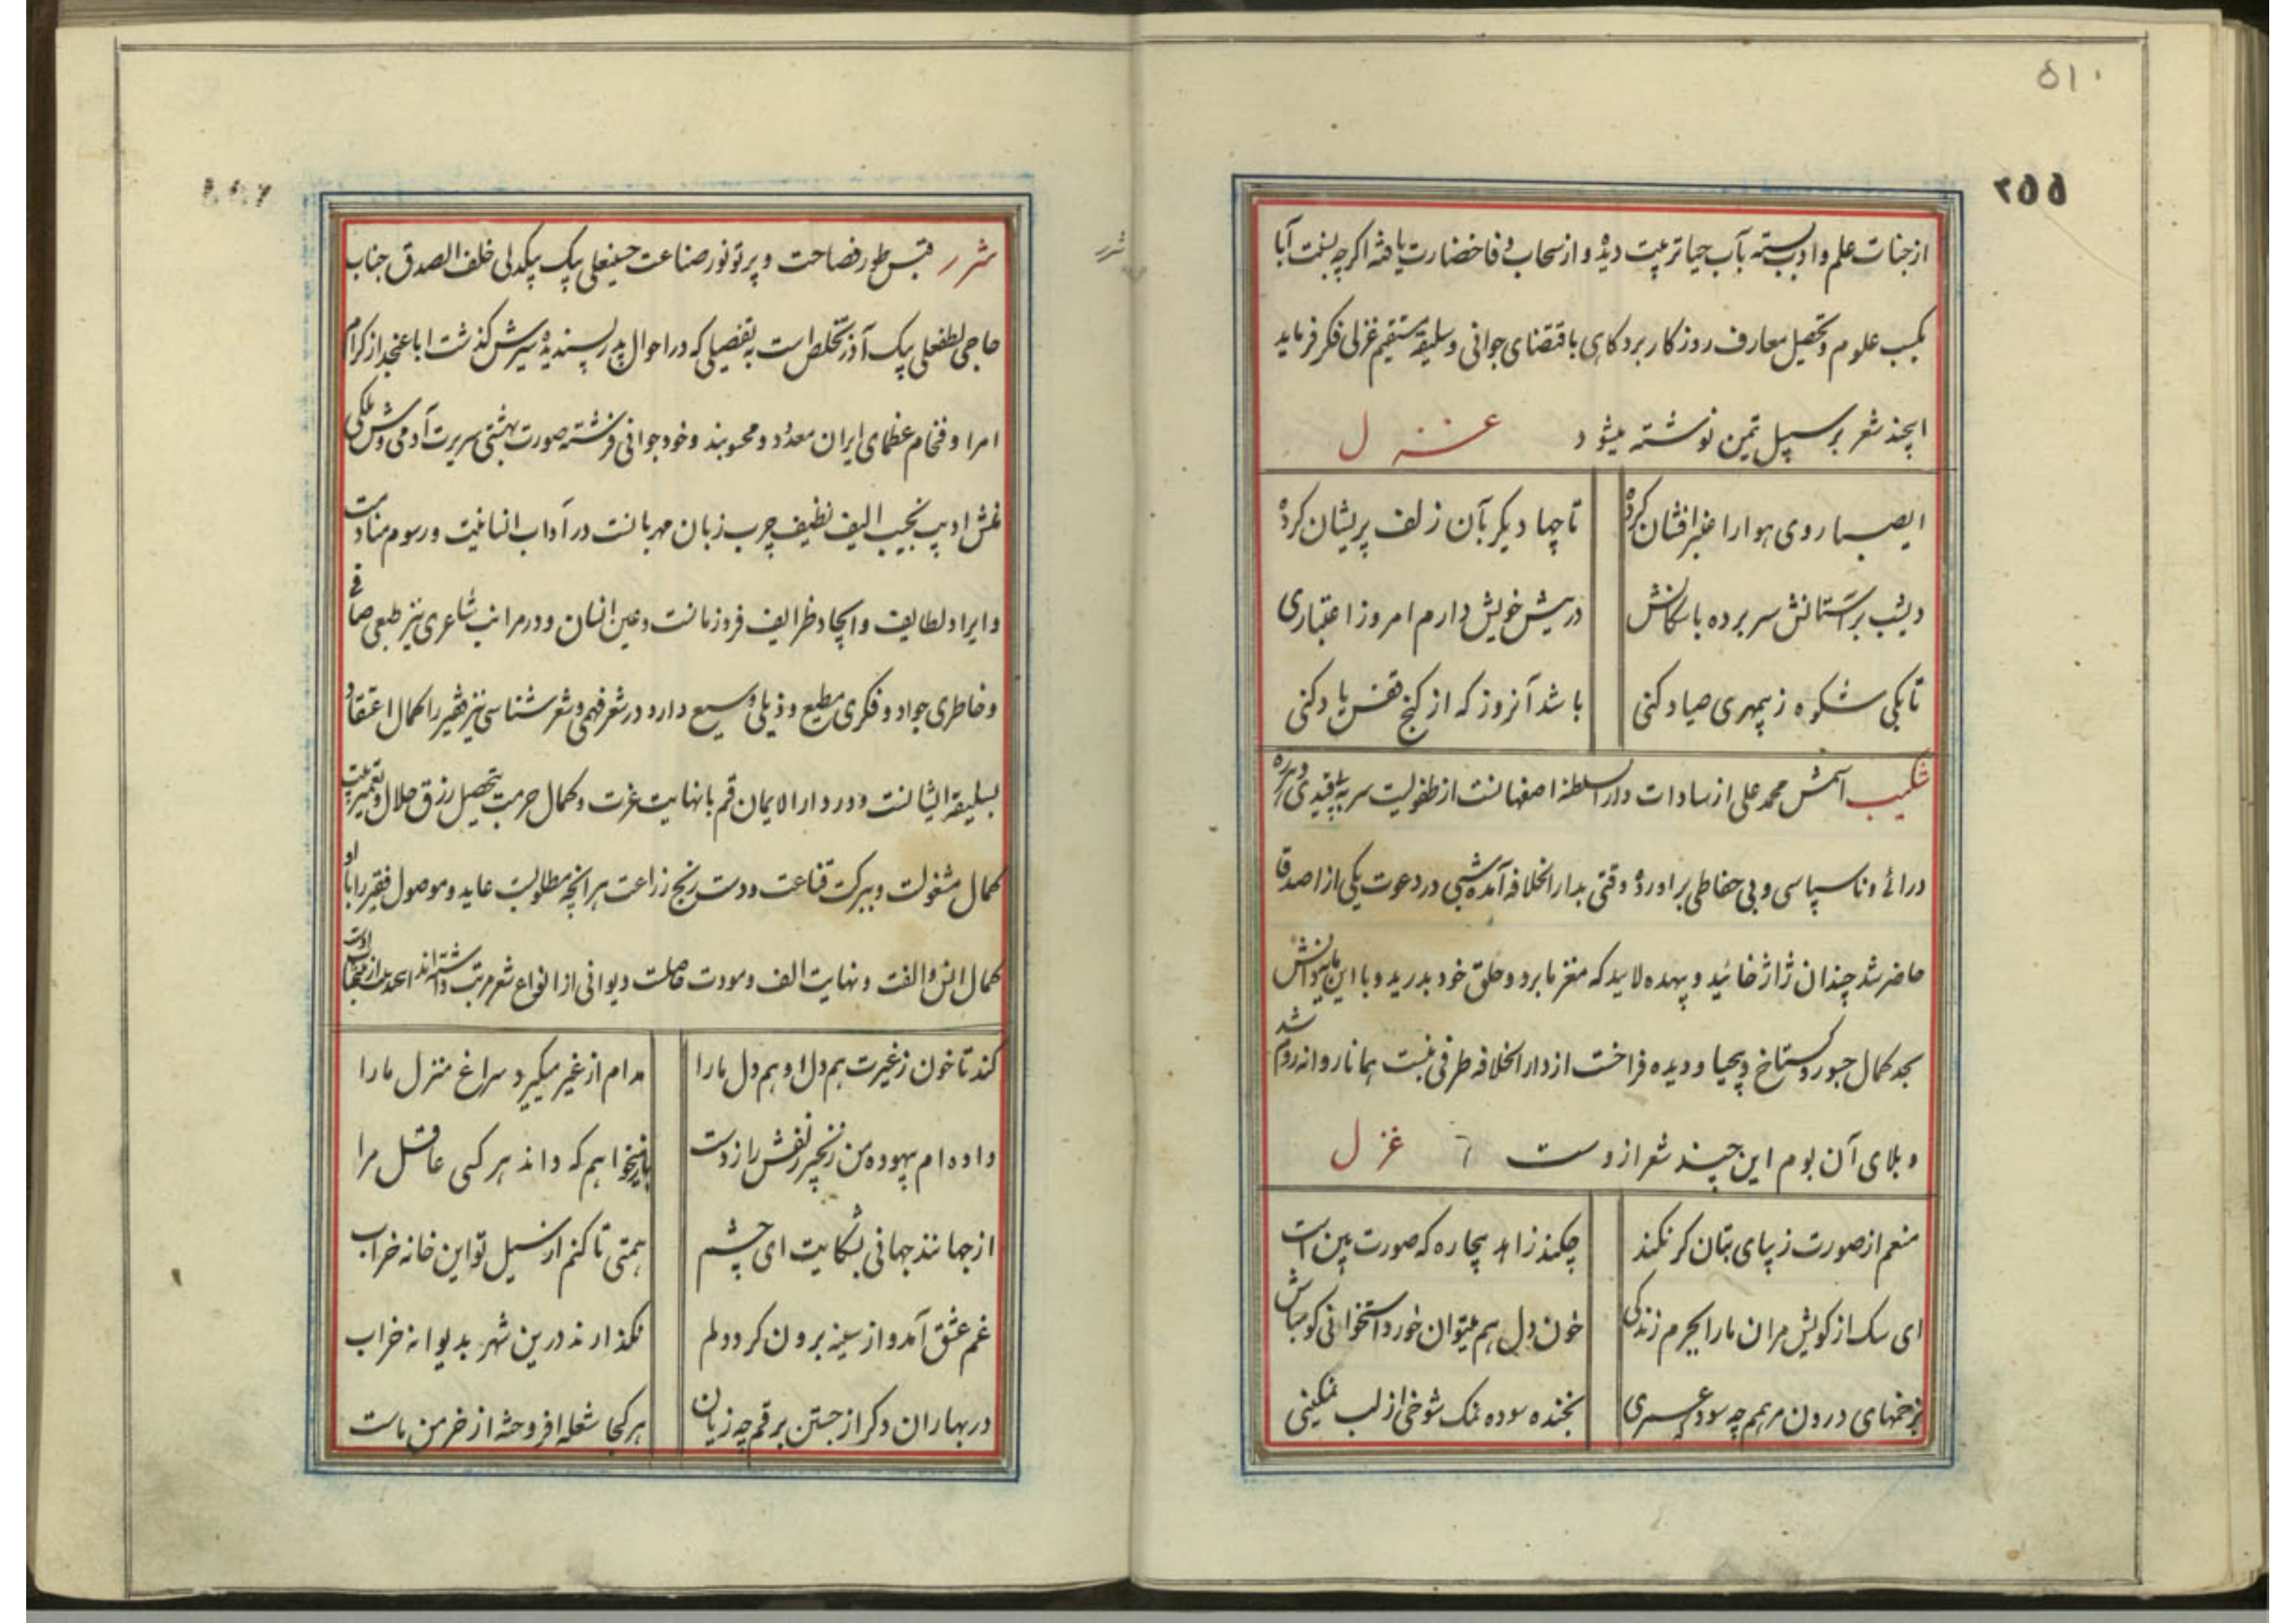 ۵۱۰
۲۵۵
از جنات علم و ادب بسته بآب حیا تربیت دیده و از سحاب وفا خضارت یافته اکرچه بسنت آبا
بکسب علوم و تحصیل معارف روزکار برد کاهی باقتضای جوانی و سلیقه مستقیم غزلی فکر فرماید
اینچند شعر بر سبیل تیمن نوشته میشود غزل
ایصبا روی هوا را عنبرافشان کرده تا چها دیکر بآن زلف پریشان کرده
دیشب بر آستانش سر برده با سکانش در پیش خویش دارم امروز اعتباری
تا بکی شکوه ز بیمهری صیاد کنی باشد آنروز که از کنج قفس یاد کنی
شکیب اسمش محمد علی از سادات دار السلطنه اصفهانست از طفولیت سر به بیقیدی و هرزه
درائی و ناسپاسی و بی حفاظی براورده وقتی بدار الخلافه آمده شبی در دعوت یکی از اصدقا
حاضر شد چندان ژاژ خائید و بیهده لایید که مغز ما برد و حلق خود بدرید و با این
بحد کمال جسور و کستاخ و بیحیا و دیده فراخت از دار الخلافه طرفی نبست همانا روانه روم شد
و بلای آن بوم این چند شعر ازوست غزل
منعم از صورت زیبای بتان کر نکند چکند زاهد بیچاره که صورت بین است
ای سک از کویش مران ما را بجرم زندکی خون دل هم میتوان خورد استخوانی کو مباش
بزخمهای درون مرهم چه سود بخنده سوده نمک شوخی از لب نمکینی
شرر
شرر قبس طور فصاحت و پرتو نور صناعت حسینعلی بیک بیکدلی خلف الصدق جناب
حاجی لطفعلی بیک آذر تخلص است به تفصیلی که در احوال پدر پسندیده سیرش کذشت ابا عنجد از کرام
امرا و فخام عظمای ایران معدود و محسوبند و خود جوانی فرشته صورت بهشتی سریرت آدمی وش ملکی
منش ادیب نجیب الیف نظیف چرب زبان مهربانست در آداب انسانیت و رسوم منادمت
و ایراد لطایف و ایجاد ظرایف فرد زمانست و عین انسان و در مراتب شاعری نیز طبعی صافی
و خاطری جواد و فکری مطیع و ذیلی وسیع دارد در شعر فهمی و شعر شناسی نیز فقیر را کمال اعتقاد
بسلیقه ایشانست و در دار الایمان قم با نهایت عزت و کمال حرمت بتحصیل رزق حلال و تعمیر بیت
کمال مشغولست و ببرکت قناعت و دست رنج زراعت هر انچه مطلوبست عاید و موصول فقیر را با او
کمال انس و الفت و نهایت الف و مودت حاصلست دیوانی از انواع شعر مرتب داشته اند
کند تا خون ز غیرت هم دل او هم دل ما را مدام از غیر میکیرد سراغ منزل ما را
داده ام بیهوده من زنجیر زلفش را ز دست باز میخواهم که داند هر کسی عاقل مرا
از جهانند جهانی بشکایت ای چشم همتی تا کنم از سیل تو این خانه خراب
غم عشق آمد و از سینه برون کرد دلم نکذارند درین شهر بدیوانه خراب
در بهاران دکر از جستن برقم چه زیان هر کجا شعله افروخته از خرمن ماست